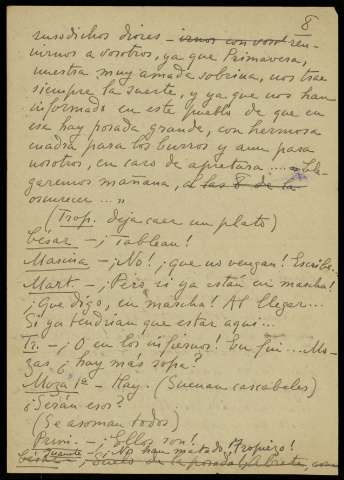 8
susodichos dioses — irnos con vosot reu-
nirnos a vosotros, ya que Primavera,
nuestra muy amada sobrina, nos trae
siempre la suerte, y ya que nos han
informado en este pueblo de que en
esa hay posada grande, con hermosa
cuadra para los burros y aun para
nosotros, en caso de apretura.... Lle-
garemos mañana, a las 8 de la
oscurece ...»
(Trop. deja caer un plato)
César — ¡Tableau!
— ¡No! ¡que no vengan! Escribe..
Mart. — ¡Pero si ya están en marcha!
¡Que digo, en marcha! Al llegar...
Si ya tendrían que estar aquí...
Tr. — ¡O en los infiernos! En fin... Mo-
zas ¿hay más sopa?
Moza 1ª — Hay. (Suenan cascabeles)
¿Serán esos?
(Se asoman todos)
Primi. — ¡Ellos son!
¡No han matado, Tropiezo!
de la posada